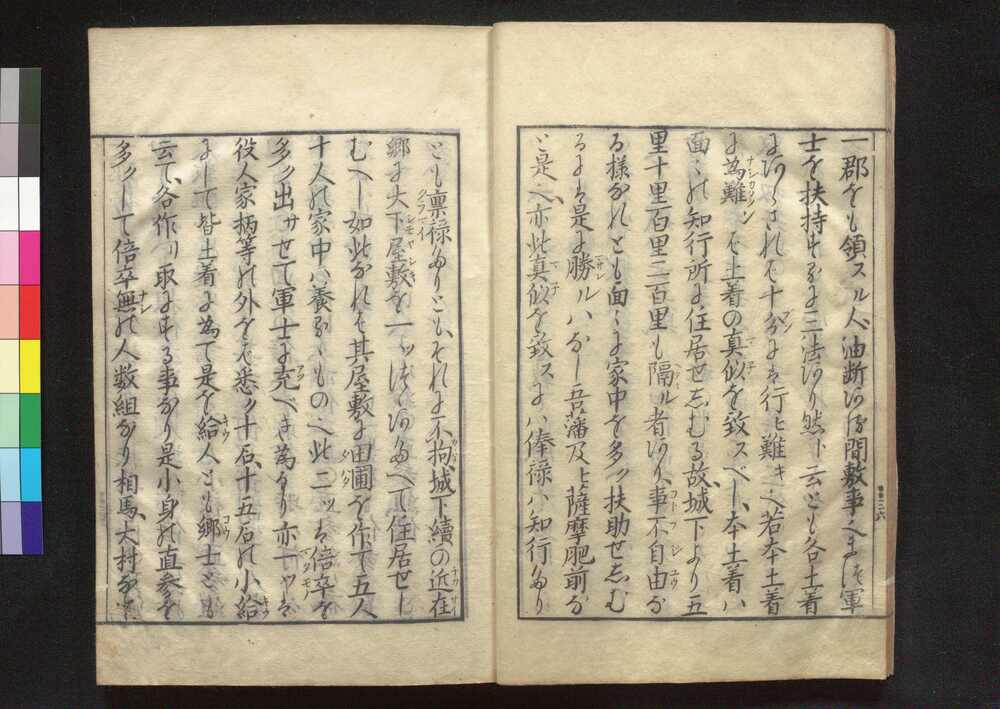 一郡をも領スル人、油断ある間敷事也、まづ軍
士を扶持するに三法あり、然ト云とも名土着
にあらされは十分には行ヒ難キ也、若本土着
に為難ンば土着の真似を致スベし、本土着ハ
面々の知行所に住居せしむる故、城下より五
里十里百里二百里も隔ル者あり、事不自由な
る様なれとも面々に家中を多ク扶助せしむ
るにハ是に勝ルハなし、吾藩及ヒ薩摩肥前な
ど是也、亦此真似を致スにハ俸禄ハ知行なり
とも禀禄なりとも、それに不拘城下續の近在
郷に大下屋敷を一ツづゝあたへて住居せし
むへし、如此なれば其屋敷に田圃を作て五人
十人の家中ハ養なハるゝもの也、此二ツは倍卒を
多ク出サせて軍士に充べき為なり、亦一ツは
役人家柄等の外をば悉ク十石、十五石の小給
にして皆土着に為て是を給人とも郷士とも
云て、各作リ取にする事なり、是小身の直参を
多クして倍卒無の人数組なり、相馬、大村など